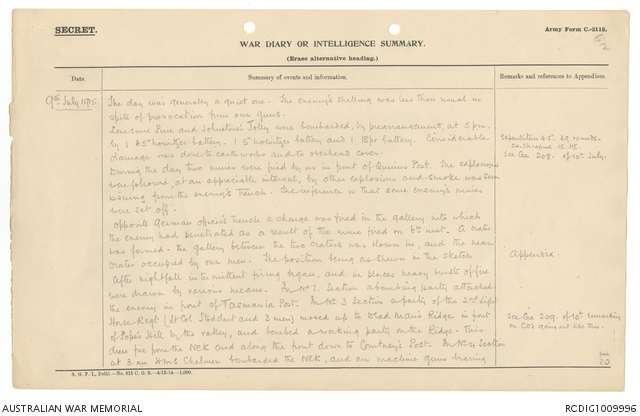 SECRET.
Army Form C.-2118.
WAR DIARY OR INTELLIGENCE SUMMARY.
(Erase alternative heading.)
Date.
Summary of events and information.
Remarks and references to Appendices.
9th July 1915.
The day was generally a quiet one. The enemy's shelling was less than usual in
spite of provocation from our guns.
Lonesome Pine and Johnston's Jolly were bombarded, by prearrangement, at 5 pm,
by 1 4.5" howitzer battery, 1 5" howitzer battery and 1 18pr battery. Considerable
damage was done to earthworks and to overhead cover.
During the day two mines were fired by us in front of Quinns Post. The explosions
were followed, at an appreciable interval, by other explosions and smoke was seen
issuing from the enemy's trench. The inference is that some enemy's mines
were set off.
Opposite German Officer's Trench a charge was fired in the gallery into which
the enemy had penetrated as a result of the mine fired on 6th inst. A crater
was formed - the gallery between the two craters was blown in, and the near
crater occupied by our men. The position being as shewn in the sketch
After nightfall intermittent firing began, and in places heavy bursts of fire
were drawn by various means. In No 1. Section a bombing party attacked
the enemy in front of Tasmania Post. In No 3 Section a party of the 2nd Light
Horse Regt (Lt Col. Stodart and 3 men) moved up to Dead Man's Ridge in front
of Pope's Hill by the valley, and bombed a working party on the Ridge. This
drew fire from the NEK and along the front down to Courtney's Post. In No 4 Section
at 3 am HMS Chelmer bombarded the NEK, and our machine guns bearing
See Gea 208. of 10th July.
Appendix.
See Gea 209. of 10th
20
S. G. P. I., Delhi.—No. 611 C. G. S.—4-12-14—1,000.
AUSTRALIAN WAR MEMORIAL
RCDIG1009996